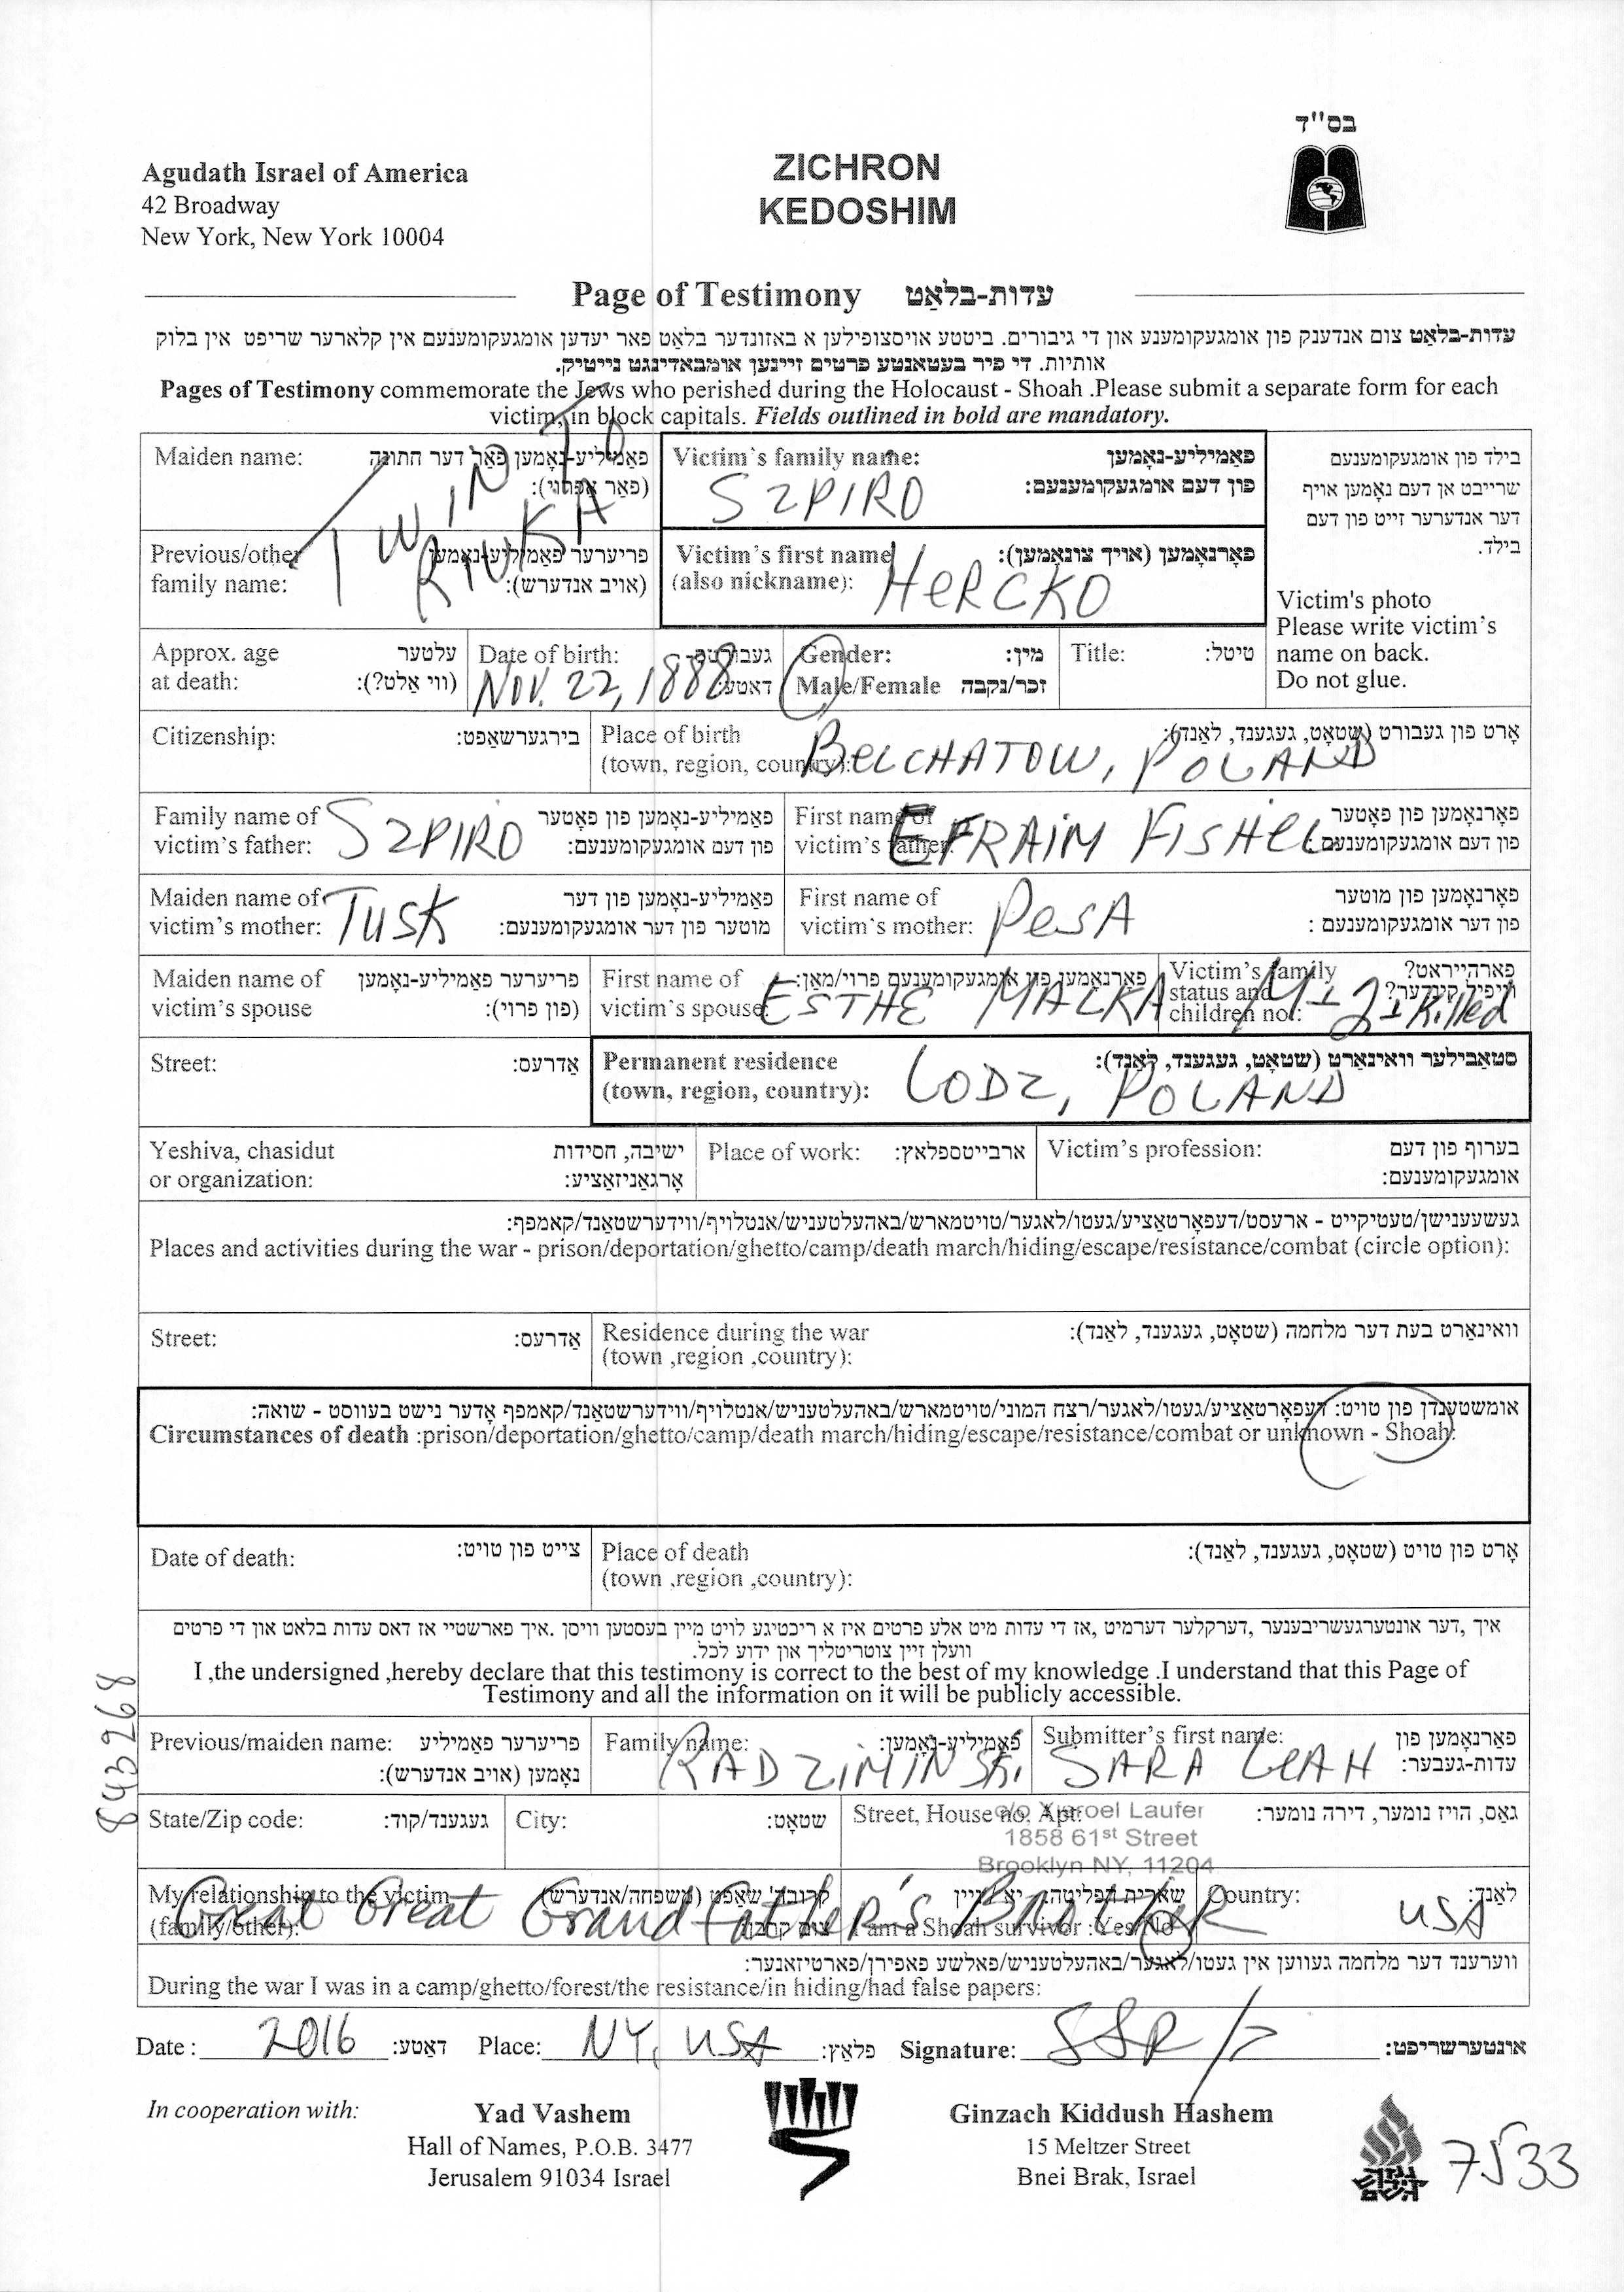 בס"ד
Agudath Israel of America
42 Broadway
New York, New York 10004
ZICHRON
KEDOSHIM
Page of Testimony עדות-בלאַט
עדות-בלאַט צום אנדענק פון אומגעקומענע און די גיבורים. ביטטע אויסצופילען א באזונדער בלאַט פאר יעדען אומגעקומענעם אין קלארער שריפט אין בלוק
אותיות. די פיר בעטאנטע פרטים זיינען אומבאדינגט נייטיק.
Pages of Testimony commemorate the Jews who perished during the Holocaust - Shoah .Please submit a separate form for each
victim, in block capitals. Fields outlined in bold are mandatory.
Maiden name: פאַמיליע-נאָמען פאַר דער חתונה
(פאר אַ פרוי):
TWIN TO
RIVKA
Victim's family name: פאַמיליע-נאָמען
פון דעם אומגעקומענעם:
SZPIRO
בילד פון אומגעקומענעם
שרייבט אן דעם נאָמען אויף
דער אנדערער זייט פון דעם
בילד.
Victim's photo
Please write victim's
name on back.
Do not glue.
Previous/other פריערער פאַמיליע-נאָמען
family name: (אויב אנדערש):
Victim's first name פאָרנאָמען (אויך צונאָמען):
(also nickname): HERCKO
Approx. age עלטער
at death: (ווי אַלט?):
Date of birth: געבורטס-
דאטע:
Nov. 22, 1888
Gender: מין:
Male/Female זכר/נקבה
Title: טיטל:
Citizenship: בירגערשאַפט:
Place of birth אָרט פון געבורט (שטאָט, געגענד, לאַנד):
(town, region, country): BELCHATOW, POLAND
Family name of פאַמיליע-נאָמען פון פאָטער
victim's father: פון דעם אומגעקומענעם:
SZPIRO
First name of פאָרנאָמען פון פאָטער
victim's father: פון דעם אומגעקומענעם:
EFRAIM FISHEL
Maiden name of פאַמיליע-נאָמען פון דער
victim's mother: מוטער פון דער אומגעקומענעם:
TUSK
First name of פאָרנאָמען פון מוטער
victim's mother: פון דער אומגעקומענעם :
PESA
Maiden name of פריערער פאַמיליע-נאָמען
victim's spouse (פון פרוי):
First name of פאָרנאָמען פון אומגעקומענעם פרוי/מאַן:
victim's spouse: ESTHE MALKA
Victim's family פארהייראט?
status and וויפיל קינדער?
children no.:
M+ 2+ Killed
Street: אַדרעס:
Permanent residence סטאַבילער וואינאָרט (שטאָט, געגענד, לאַנד):
(town, region, country): LODZ, POLAND
Yeshiva, chasidut ישיבה, חסידות
or organization: אָרגאַניזאַציע:
Place of work: ארבייטספלאץ:
Victim's profession: בערוף פון דעם
אומגעקומענעם:
געשעענישן/טעטיקייט - ארעסט/דעפאָרטאַציע/געטו/לאגער/טויטמארש/באהעלטעניש/אנטלויף/ווידערשטאַנד/קאמפף:
Places and activities during the war - prison/deportation/ghetto/camp/death march/hiding/escape/resistance/combat (circle option):
Street: אַדרעס:
Residence during the war וואינאָרט בעת דער מלחמה (שטאָט, געגענד, לאַנד):
(town ,region ,country):
אומשטענדן פון טויט: דעפאָרטאַציע/געטו/לאגער/רצח המוני/טויטמארש/באהעלטעניש/אנטלויף/ווידערשטאַנד/קאמפף אָדער נישט בעווסט - שואה:
Circumstances of death :prison/deportation/ghetto/camp/death march/hiding/escape/resistance/combat or unknown - Shoah:
Date of death: צייט פון טויט:
Place of death אָרט פון טויט (שטאָט, געגענד, לאַנד):
(town ,region ,country):
איך ,דער אונטערגעשריבענער ,דערקלער דערמיט ,אז די עדות מיט אלע פרטים איז א ריכטיגע לויט מיין בעסטען וויסן .איך פארשטיי אז דאס עדות בלאט און די פרטים
וועלן זיין צוטריטליך און ידוע לכל.
I ,the undersigned ,hereby declare that this testimony is correct to the best of my knowledge .I understand that this Page of
Testimony and all the information on it will be publicly accessible.
843268
Previous/maiden name: פריערער פאַמיליע
נאָמען (אויב אנדערש):
Family name: פאַמיליע-נאָמען:
RADZIMINSKI
Submitter's first name: פארנאָמען פון
עדות-געבער:
SARA LEAH
State/Zip code: געגענד/קוד:
City: שטאָט:
Street, House no, Apt: גאַס, הויז נומער, דירה נומער:
c/o Yisroel Laufer
1858 61st Street
Brooklyn NY, 11204
My relationship to the victim
(family/other):
Great Great Grand Father's Brother
I am a Shoah survivor :Yes/No
Country: לאַנד:
USA
ווערענד דער מלחמה געווען אין געטו/לאגער/באהעלטעניש/פאלשע פאפירן/פארטיזאנער:
During the war I was in a camp/ghetto/forest/the resistance/in hiding/had false papers:
Date : 2016 דאַטע: Place: NY, USA פלאַץ: Signature: SSR אונטערשריפט:
In cooperation with:
Yad Vashem
Hall of Names, P.O.B. 3477
Jerusalem 91034 Israel
Ginzach Kiddush Hashem
15 Meltzer Street
Bnei Brak, Israel
7533